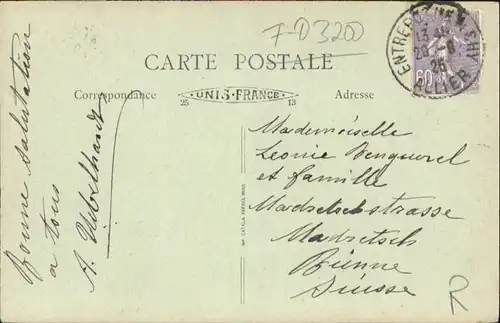 7-D3200
CARTE POSTALE
Correspondance
UNIS-FRANCE
25
13
Adresse
ALLIER
60
25
Bonne salutation
a tous
A.
Mademoiselle
Leonie
et famille
Madretschstrasse
Madretsch
Bienne
Suisse